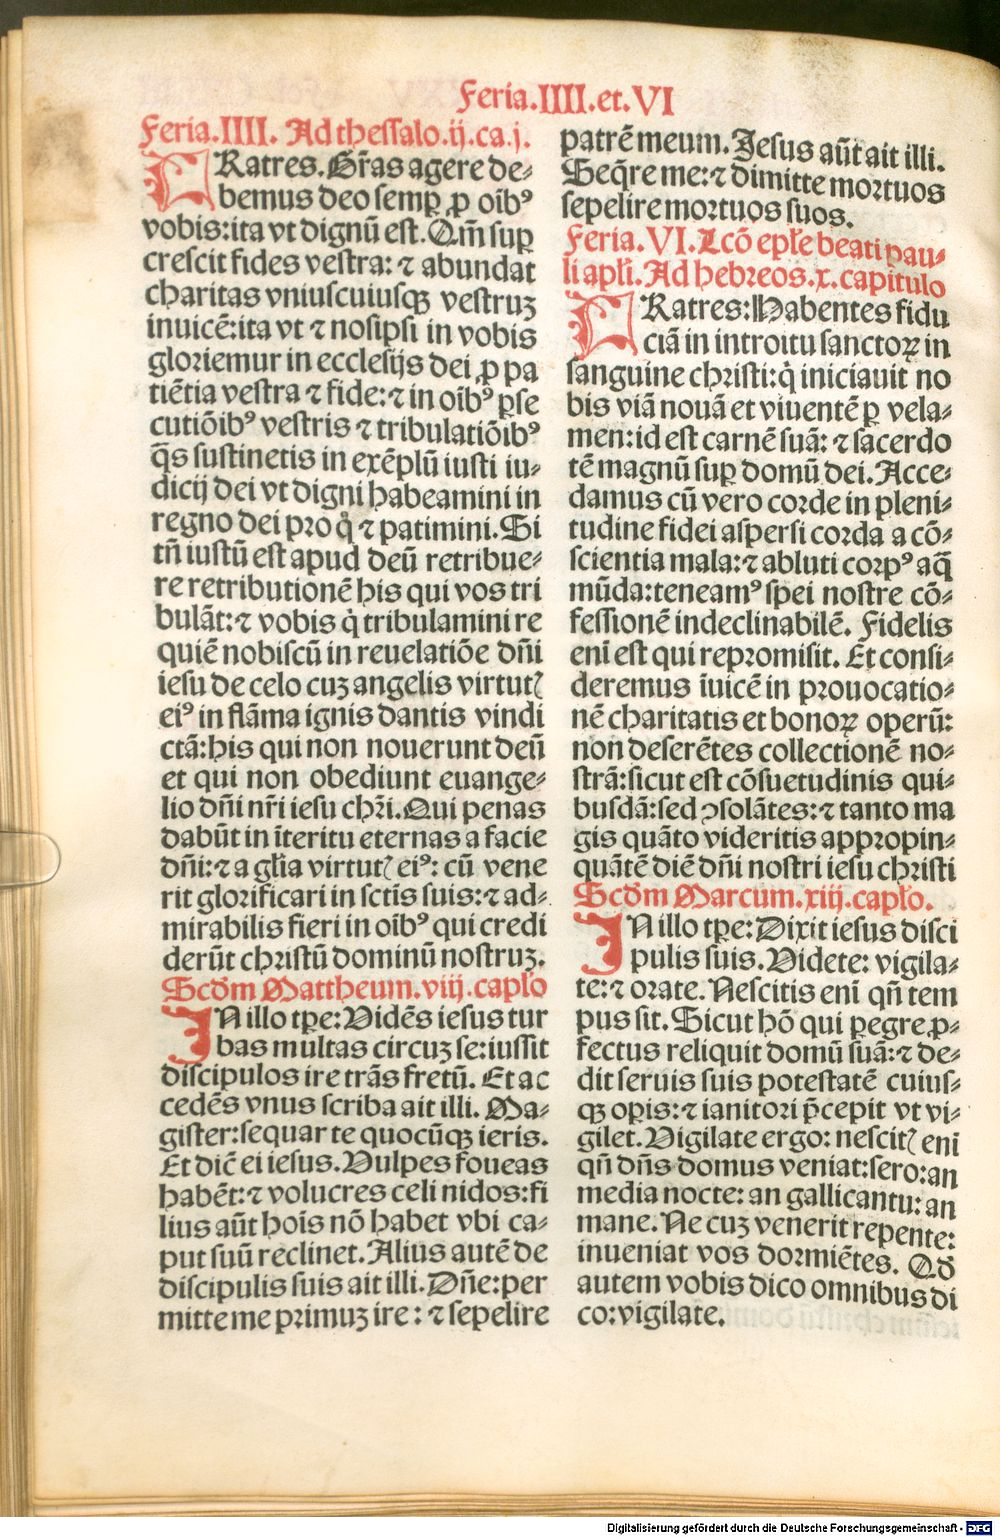 Feria.IIII.et.VI
Feria.IIII. Ad thessalo.ij.ca.j.
FRatres. Gr̄as agere de⸗
bemus deo semp̲ ꝓ oīb⁹
vobis:ita vt dignū est. Qm̄ sup̲
crescit fides vestra: ⁊ abundat
charitas vniuscuiusqꝫ vestruꝫ
inuicē:ita vt ⁊ nosipsi in vobis
gloriemur in ecclesijs dei ꝓ pa
tiētia vestra ⁊ fide:⁊ in oīb⁹ ꝑse
cutiōib⁹ vestris ⁊ tribulatiōib⁹
q̄s sustinetis in exēplū iusti iu⸗
dicij dei vt digni habeamini in
regno dei pro q̊ ⁊ patimini. Si
tn̄ iustū est apud deū retribue⸗
re retributionē his qui vos tri
bulāt:⁊ vobis q̇ tribulamini re
quiē nobiscū in reuelatiōe dn̄i
iesu de celo cuꝫ angelis virtutꝭ
ei⁹ in flāma ignis dantis vindi
ctā:his qui non nouerunt deū
et qui non obediunt euange⸗
lio dn̄i nr̄i iesu chꝛ̄i. Qui penas
dabūt in īteritu eternas a facie
dn̄i:⁊ a gl̄ia virtutꝭ ei⁹: cū vene
rit glorificari in sctīs suis:⁊ ad⸗
mirabilis fieri in oīb⁹ qui credi
derūt christū dominū nostruꝫ.
Scd̄m Mattheum.viij.capl̄o
IN illo tꝑe: Vidēs iesus tur
bas multas circuꝫ se:iussit
discipulos ire trās fretū. Et ac
cedēs vnus scriba ait illi. Ma⸗
gister:sequar te quocūqꝫ ieris.
Et dic̄ ei iesus. Vulpes foueas
habēt:⁊ volucres celi nidos:fi
lius aūt hoīs nō habet vbi ca⸗
put suū reclinet. Alius autē de
discipulis suis ait illi. Dn̄e:per
mitte me primuꝫ ire: ⁊ sepelire
patrē meum. Jesus aūt ait illi.
Seq̄re me:⁊ dimitte moꝛtuos
sepelire moꝛtuos suos.
Feria. VI. Lcō epl̄e beati pau⸗
li apl̄i. Ad hebreos.x. capitulo
FRatres: Habentes fidu
ciā in introitu sanctoꝝ in
sanguine chꝛisti:q̇ iniciauit no
bis viā nouā et viuentē ꝑ vela⸗
men:id est carnē suā: ⁊ sacerdo
tē magnū sup̲ domū dei. Acce⸗
damus cū vero corde in pleni⸗
tudine fidei aspersi corda a cō⸗
scientia mala:⁊ abluti corp⁹ aq̄
mūda:teneam⁹ spei nostre cō⸗
fessionē indeclinabilē. Fidelis
enī est qui repꝛomisit. Et consi⸗
deremus īuicē in pꝛouocatio⸗
nē charitatis et bonoꝝ operū:
non deserētes collectionē no⸗
strā:sicut est cōsuetudinis qui⸗
busdā:sed ↄsolātes:⁊ tanto ma
gis quāto videritis appropin⸗
quātē diē dn̄i nostri iesu christi
Scd̄m Marcum.xiij.capl̄o.
IN illo tꝑe: Dixit iesus disci
pulis suis. Videte: vigila⸗
te:⁊ oꝛate. Nescitis enī qn̄ tem
pus sit. Sicut hō qui ꝑegre ꝓ⸗
fectus reliquit domū suā:⁊ de⸗
dit seruis suis potestatē cuius⸗
qꝫ oꝑis:⁊ ianitori p̄cepit vt vi⸗
gilet. Vigilate ergo: nescitꝭ enī
qn̄ dn̄s domus veniat:sero:an
media nocte: an gallicantu:an
mane. Ne cuꝫ venerit repente:
inueniat vos doꝛmiētes. Qd̄
autem vobis dico omnibus di
co:vigilate.
Digitalisierung gefördert durch die Deutsche Forschungsgemeinschaft - DFG